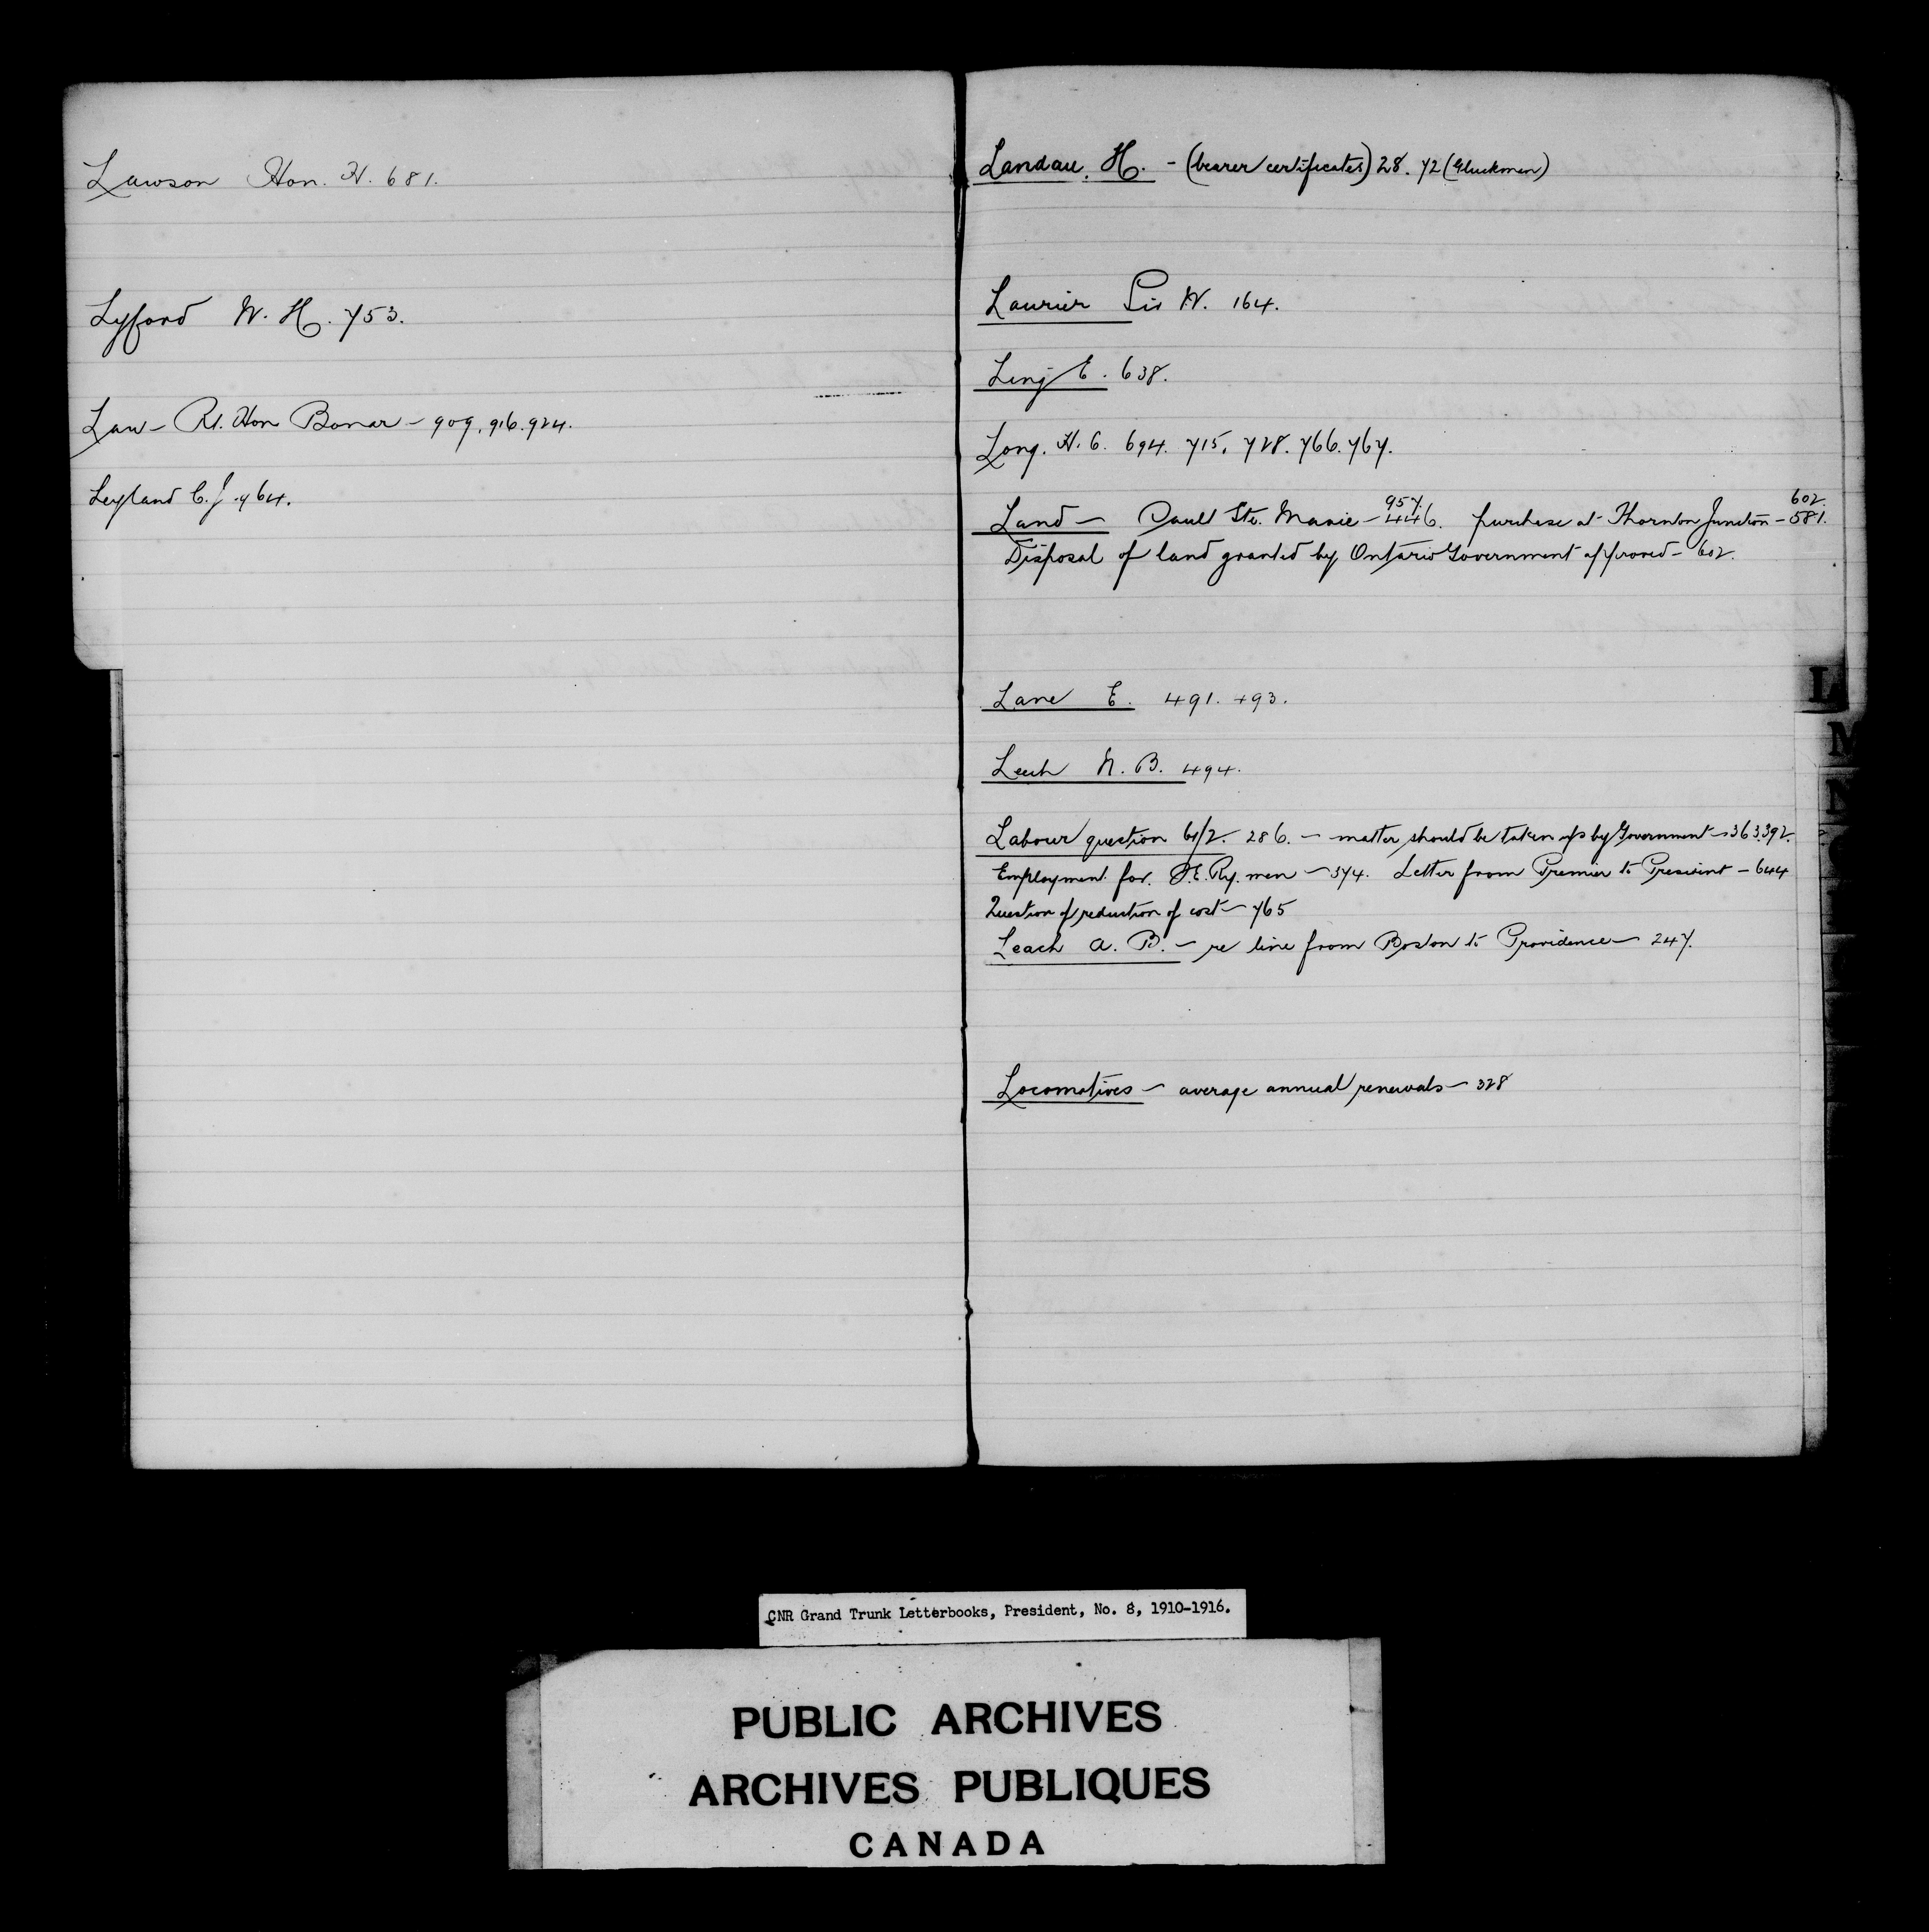 Lawson Hon. H. 681.
Lyford W. H. 753.
Law - Rt. Hon Bonar - 909, 916. 924.
Leyland C. J. 764.
Landau. H. - (bearer certificates) 28. 72 (Gluckmen)
Laurier Sir W. 164.
E. 638.
Long. H. C. 694. 715. 728. 766. 767.
957. 602.
Land - Sault Ste. Marie - 446. purchase at Thornton Junction - 581.
Disposal of land granted by Ontario Government approved - 602.
Lane E. 491. 493.
Leech N. B. 494.
Labour question 61/2. 286. - matter should be taken up by Government - 363.392.
Employment for. Ry. men - 374. Letter from Premier to President - 644
Question of reduction of cost - 765
Leach A. B. - re line from Boston to Providence - 247.
Locomotives - average annual renewals - 328
L
M
N
CNR Grand Trunk Letterbooks, President, No. 8, 1910-1916.
PUBLIC ARCHIVES
ARCHIVES PUBLIQUES
CANADA